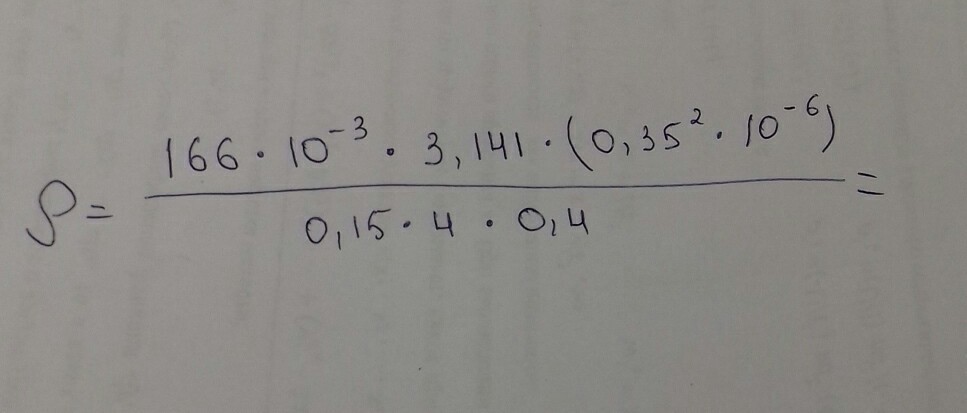 ρ = 166 · 10⁻³ · 3,141 · (0,35² · 10⁻⁶) =
0,15 · 4 · 0,4